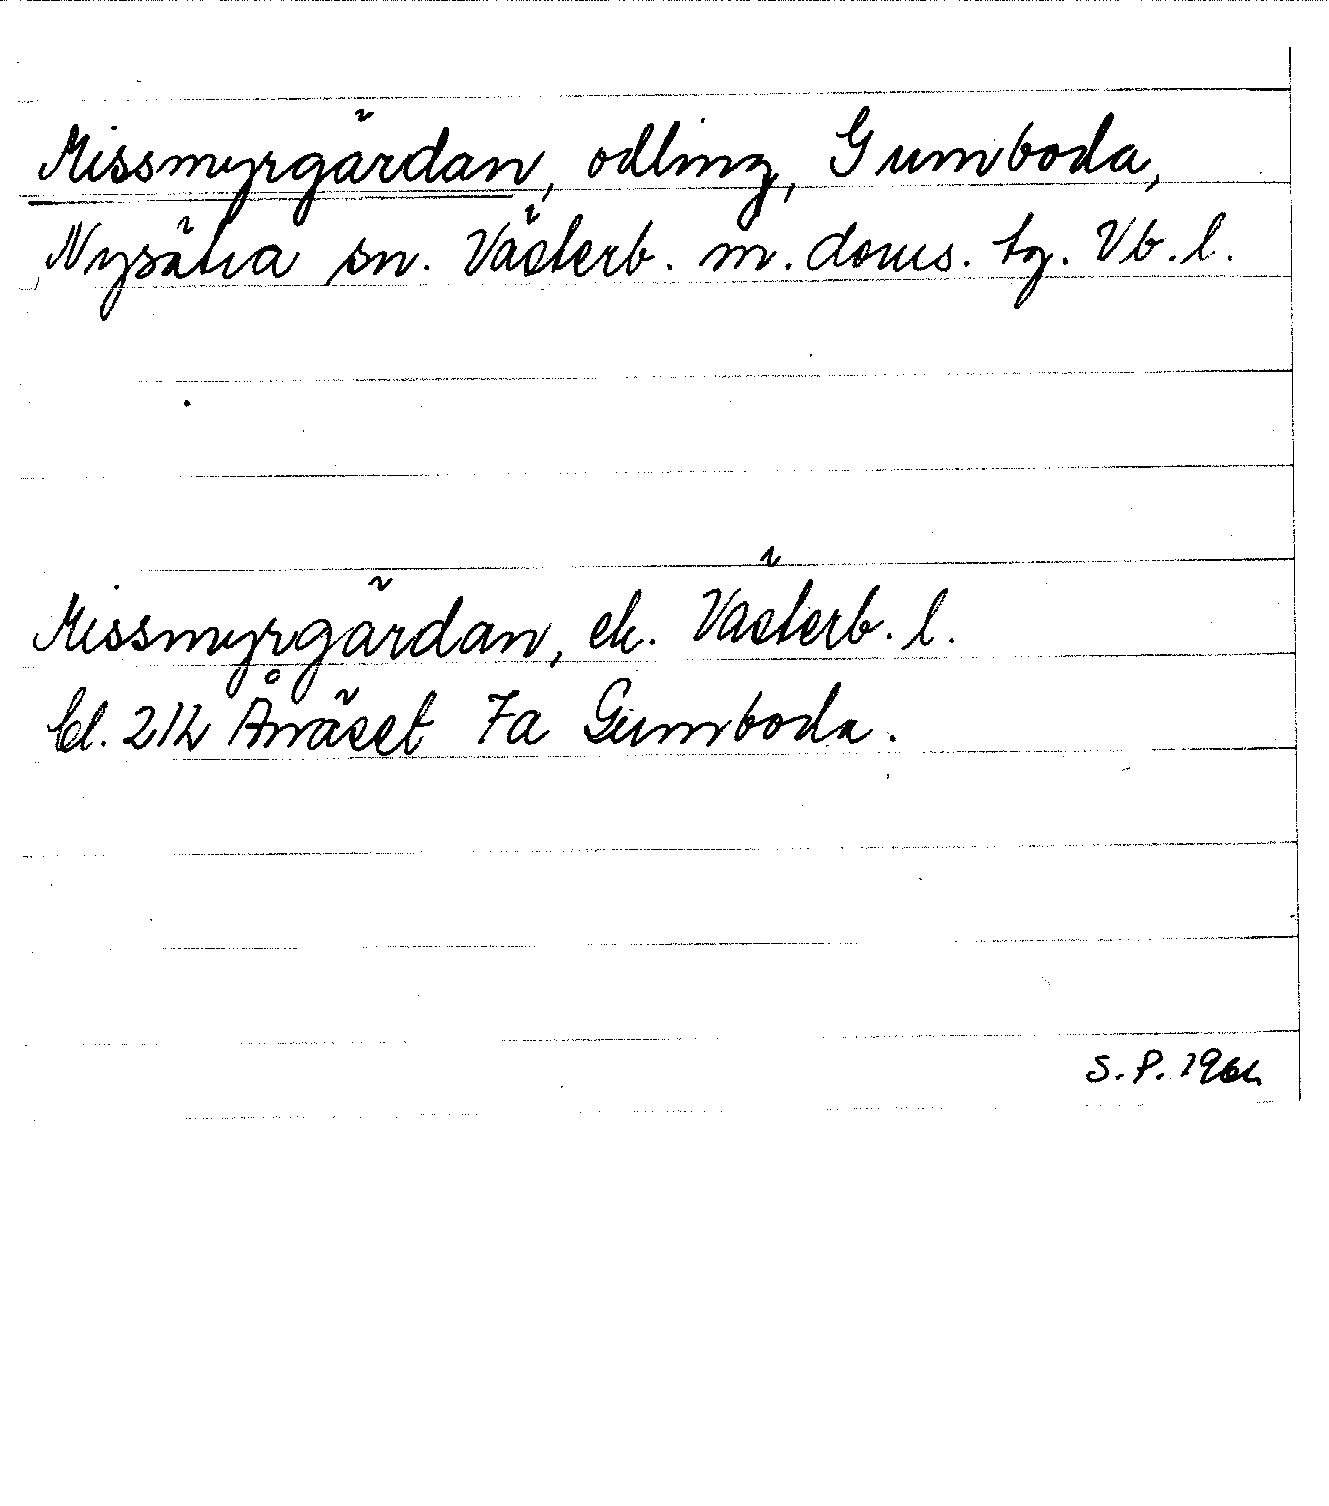 Missmyrgärdan, odling, Gumboda,
Nysätra sn. Västerb. m. doms. tg. Vb. l.
Missmyrgärdan, ek. Västerb. l.
bl. 21k Ånäset 7a Gumboda.
S.P. 1964